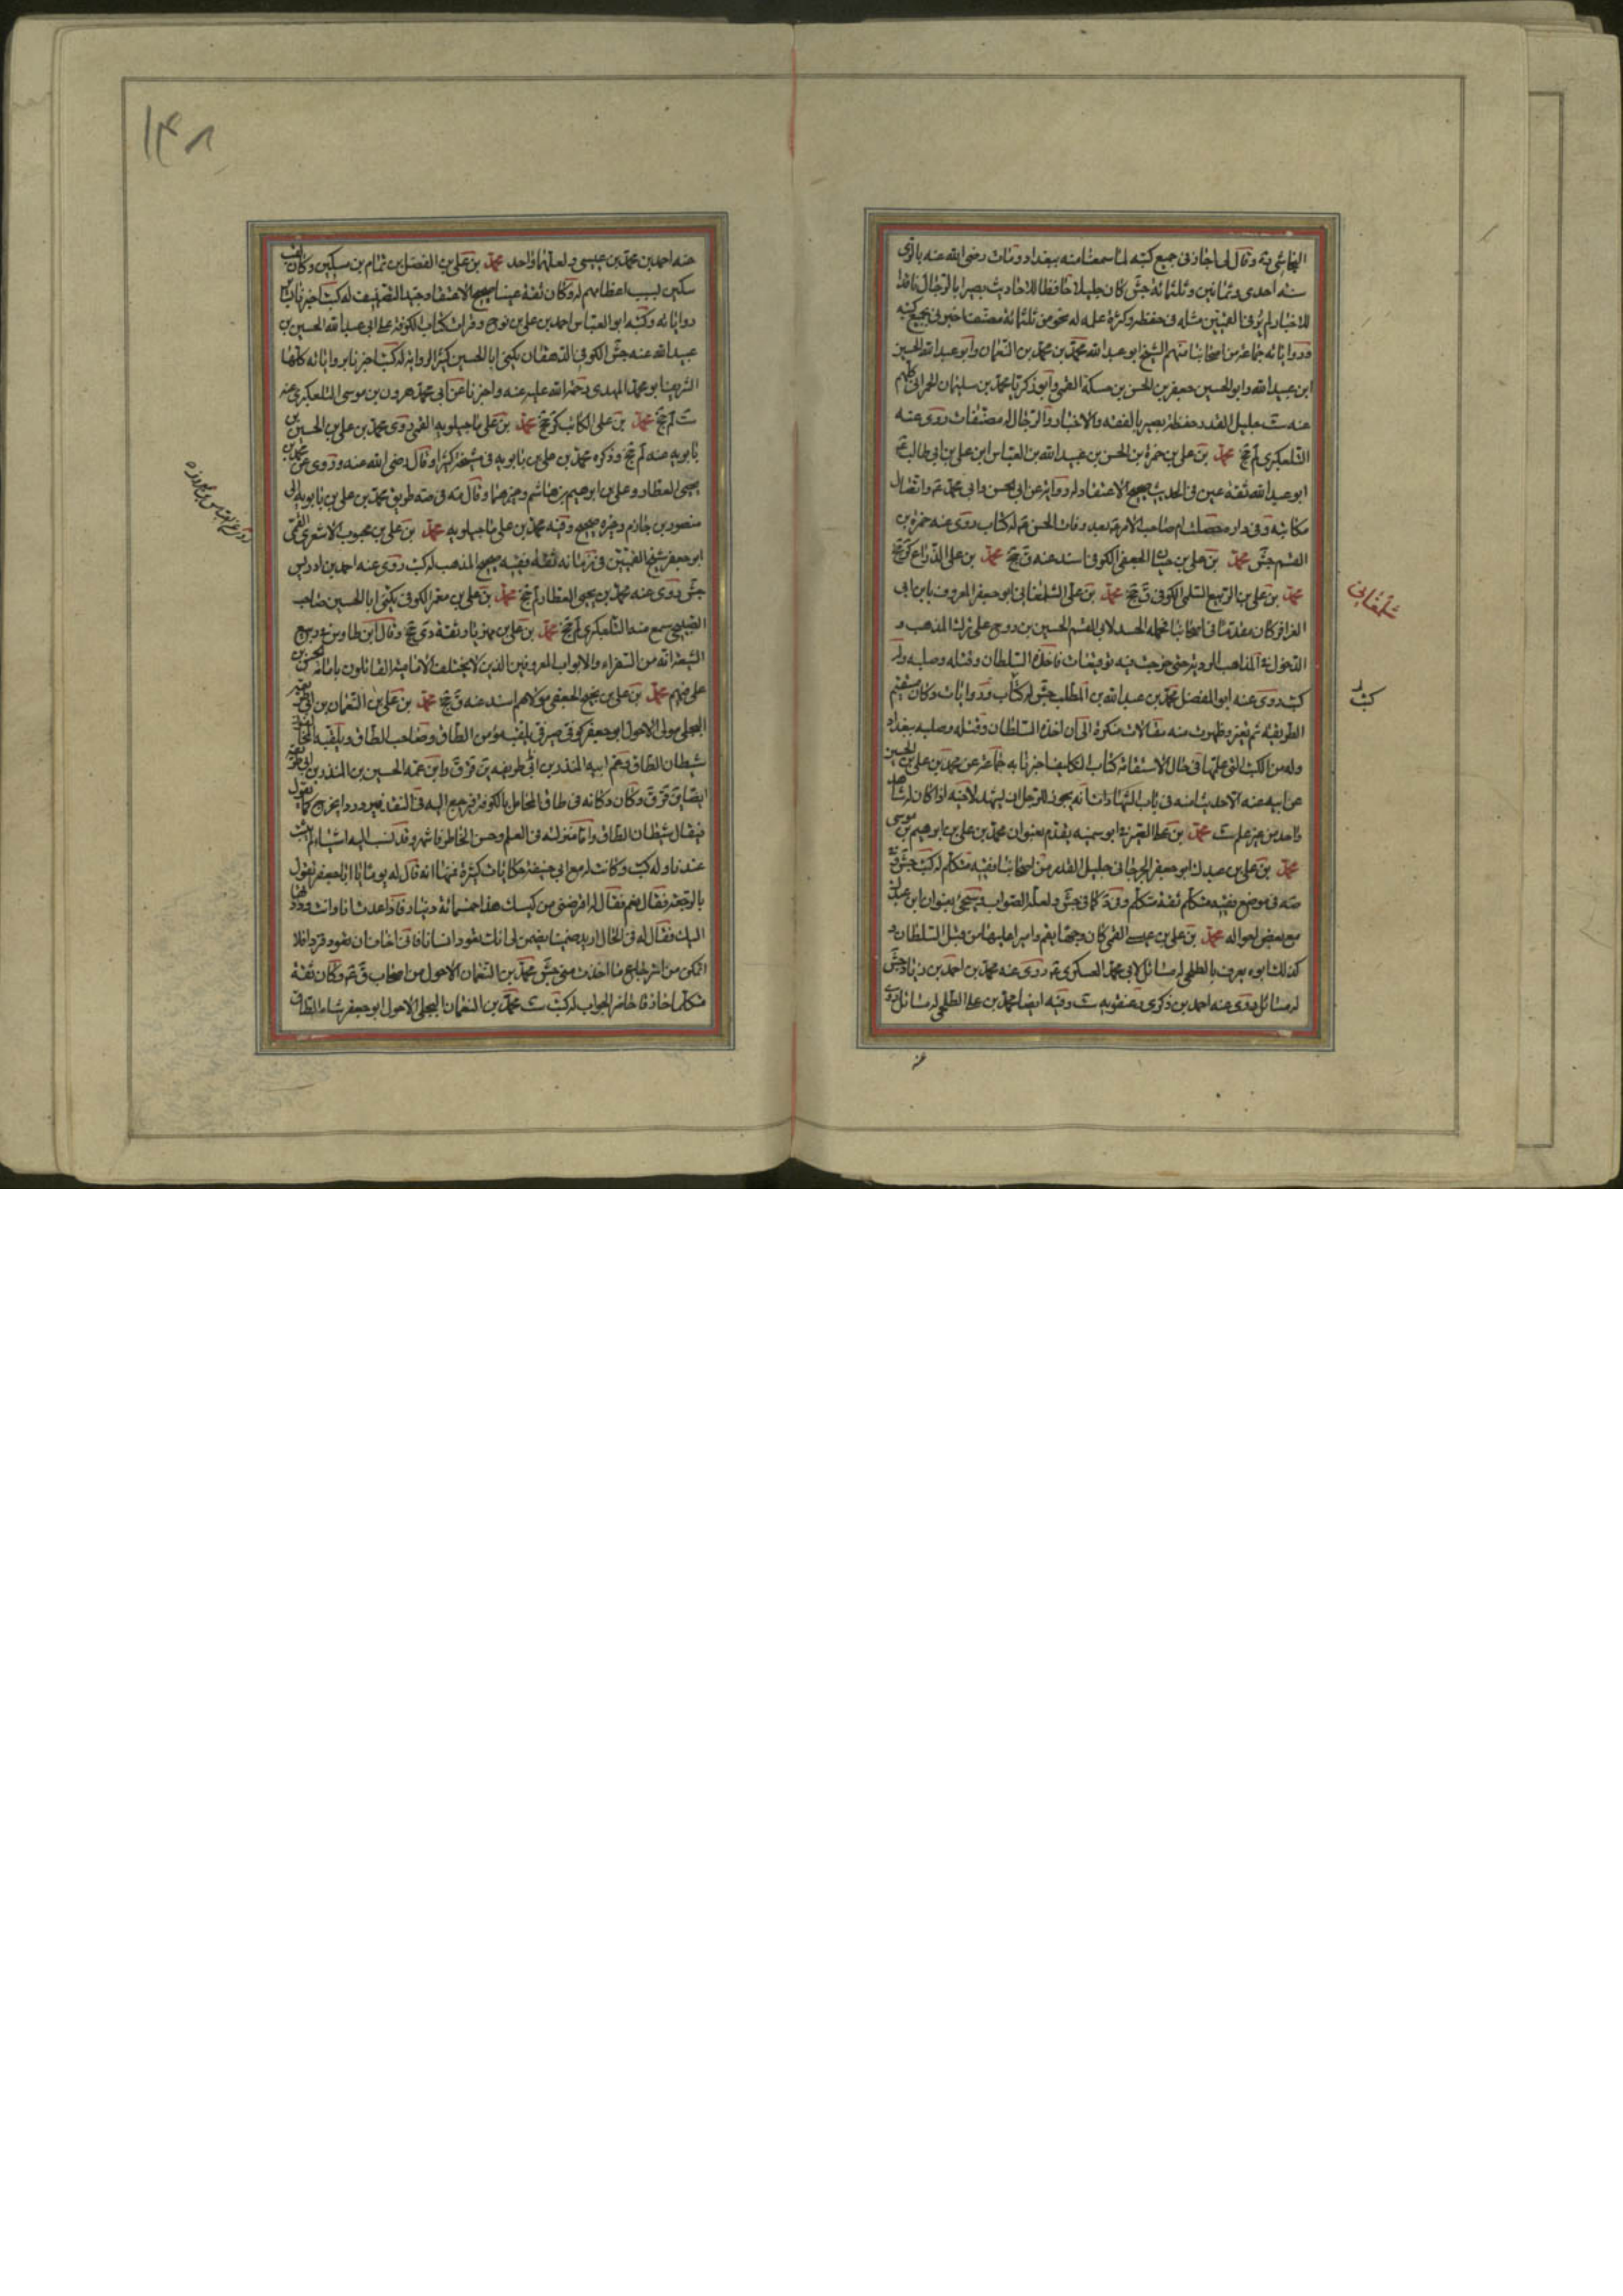 النجاشي ره وقال لي اجاز في جميع كتبه لما سمعنا منه ببغداد ومات رضي الله عنه بالري
سنه احدى وثمانين وثلثمائة جش كان جليلا حافظا للاحاديث بصيرا بالرجال ناقدا
للاخبار لم ير في القميين مثله في حفظه وكثرة علمه له نحو من ثلثمائة مصنف اخبرني بجميع كتبه
ورواياته جماعة من اصحابنا منهم الشيخ ابو عبد الله محمد بن محمد بن النعمان وابو عبد الله الحسين
ابن عبيد الله وابو الحسين جعفر بن الحسن بن حسكة القمي وابو زكريا محمد بن سليمان الحمراني كلهم
عنه ست جليل القدر حفظة بصير بالفقه والاخبار والرجال له مصنفات روى عنه
التلعكبري لم جخ محمد بن علي بن حمزة بن الحسن بن عبيد الله بن العباس ابن علي بن ابي طالب ع
ابو عبد الله ثقة عين في الحديث صحيح الاعتقاد له رواية عن ابي الحسن وابي محمد ع واتصال
مكاتبة وفي داره حصلت ام صاحب الامر ع بعد وفات الحسن ع له كتاب روى عنه حمزة بن
القسم جش محمد بن علي بن حيان الجعفي الكوفي اسند عنه ق جخ محمد بن علي الذراع كوفي جخ
محمد بن علي بن الربيع السلمي الكوفي ق جخ محمد بن علي الشلمغاني ابو جعفر المعروف بابن ابي
شلمغاني
العزاقر كان مقدما في اصحابنا فحمله الحسد لابي القسم الحسين بن روح على ترك المذهب و
الدخول في المذاهب الردية حتى خرجت فيه توقيعات فاخذه السلطان وقتله وصلبه وله
كتب روى عنه ابو المفضل محمد بن عبد الله بن المطلب جش له كتاب وروايات وكان مستقيم
له كتب
الطريقة ثم تغير وظهرت منه مقالات منكرة الى ان اخذه السلطان وقتله وصلبه ببغداد
وله من الكتب التي عملها في حال الاستقامة كتاب التكليف اخبرنا به جماعة عن محمد بن علي بن الحسين
عن ابيه عنه الا حديثا منه في باب الشهادات انه يجوز للرجل ان يشهد لاخيه اذا كان له شاهد
واحد من غير علم ست محمد بن علي الصيرفي ابو سمينه يقدم بعنوان محمد بن علي بن ابرهيم بن موسى
محمد بن علي بن عبدك ابو جعفر الجرجاني جليل القدر من اصحابنا فقيه متكلم له كتب جش وفي
صه في موضع فقيه متكلم ثقة متكلم وفي كما في جش ولعله الصواب وسيجئ بعنوان ابن عبدك
مع بعض احواله محمد بن علي بن عيسى القمي كان وجها بقم واميرا عليها من قبل السلطان و
كذلك ابوه يعرف بالطلحي له مسائل لابي محمد العسكري ع روى عنه محمد بن احمد بن زياد جش
له مسائل روى عنه احمد بن ذكرى وعنه به ست وفيه ايضا محمد بن علي الطلحي له مسائل روى
عنه
١٤٨
عنه احمد بن محمد بن عيسى ولعلهما واحد محمد بن علي بن الفضل بن تمام بن سكين وكان لقب
سكين لسبب اعظامهم له وكان ثقة عينا صحيح الاعتقاد جيد التصنيف له كتب اخبرنا بها
رواياته وكتبه ابو العباس احمد بن علي بن نوح وقرات كتاب الكوفة على ابي عبد الله الحسين بن
عبيد الله عنه جش الكوفي الدهقان يكنى ابا الحسين كثير الرواية له كتب اخبرنا برواياته كلها
الشريف ابو محمد المهدي رحمة الله عليه عنه واخبرنا عن ابي محمد هرون بن موسى التلعكبري عنه
ست لم جخ محمد بن علي الكاتب كر جخ محمد بن علي ماجيلويه القمي روى محمد بن علي بن الحسين بن
بابويه عنه لم جخ وذكره محمد بن علي بن بابويه في مشيخته كثيرا وقال رضي الله عنه وروى عن محمد بن
يحيى العطار وعلي بن ابرهيم بن هاشم وغيرهما وقال صه في صه طريق محمد بن علي بن بابويه الى
منصور بن حازم وغيره صحيح وفيه محمد بن علي ماجيلويه محمد بن علي بن محبوب الاشعري القمي
ابو جعفر شيخ القميين في زمانه ثقة فقيه صحيح المذهب له كتب روى عنه احمد بن ادريس
جش روى عنه محمد بن يحيى العطار لم جخ محمد بن علي بن معمر الكوفي يكنى ابا الحسين صاحب
الصبيحي سمع منه التلعكبري لم جخ محمد بن علي بن مهزيار ثقة دي جخ وقال ابن طاوس في ربيع
الشيعة انه من السفراء والابواب المعروفين الذين لا يختلف الامامية القائلون بامامة الحسن بن
علي فيهم محمد بن علي بن نجيح الجعفي مولاهم اسند عنه ق جخ محمد بن علي بن النعمان بن ابي طريفة
البجلي مولى الاحول ابو جعفر كوفي صيرفي يلقب مؤمن الطاق وصاحب الطاق ويلقبه المخالفون
شيطان الطاق وعم ابيه المنذر بن ابي طريفه بن قر ق وابن عمه الحسين بن المنذر بن ابي طريفة
ايضا بن قر ق وكان دكانه في طاق المحامل بالكوفة فيرجع اليه في النقد فيرد ردا يخرج كما يقول
فيقال شيطان الطاق واما منزلته في العلم وحسن الخاطر فاشهر وقد نسب اليه اشياء لم يثبت
عندنا وله كتب وكانت له مع ابي حنيفة حكايات كثيرة فمنها انه قال له يوما يا ابا جعفر تقول
بالرجعة فقال نعم فقال له اقرضني من كيسك هذا خمسمائة دينار فاذا عدت انا وانت رددتها
اليك فقال له في الحال اريد ضمينا يضمن لي انك تعود انسانا فاني اخاف ان تعود قردا فلا
اتمكن من استرجاع ما اخذت مني جش محمد بن النعمان الاحول من اصحاب ق ع وكان ثقة
متكلما حاذقا حاضر الجواب له كتب ست محمد بن النعمان البجلي الاحول ابو جعفر شاه الطاق